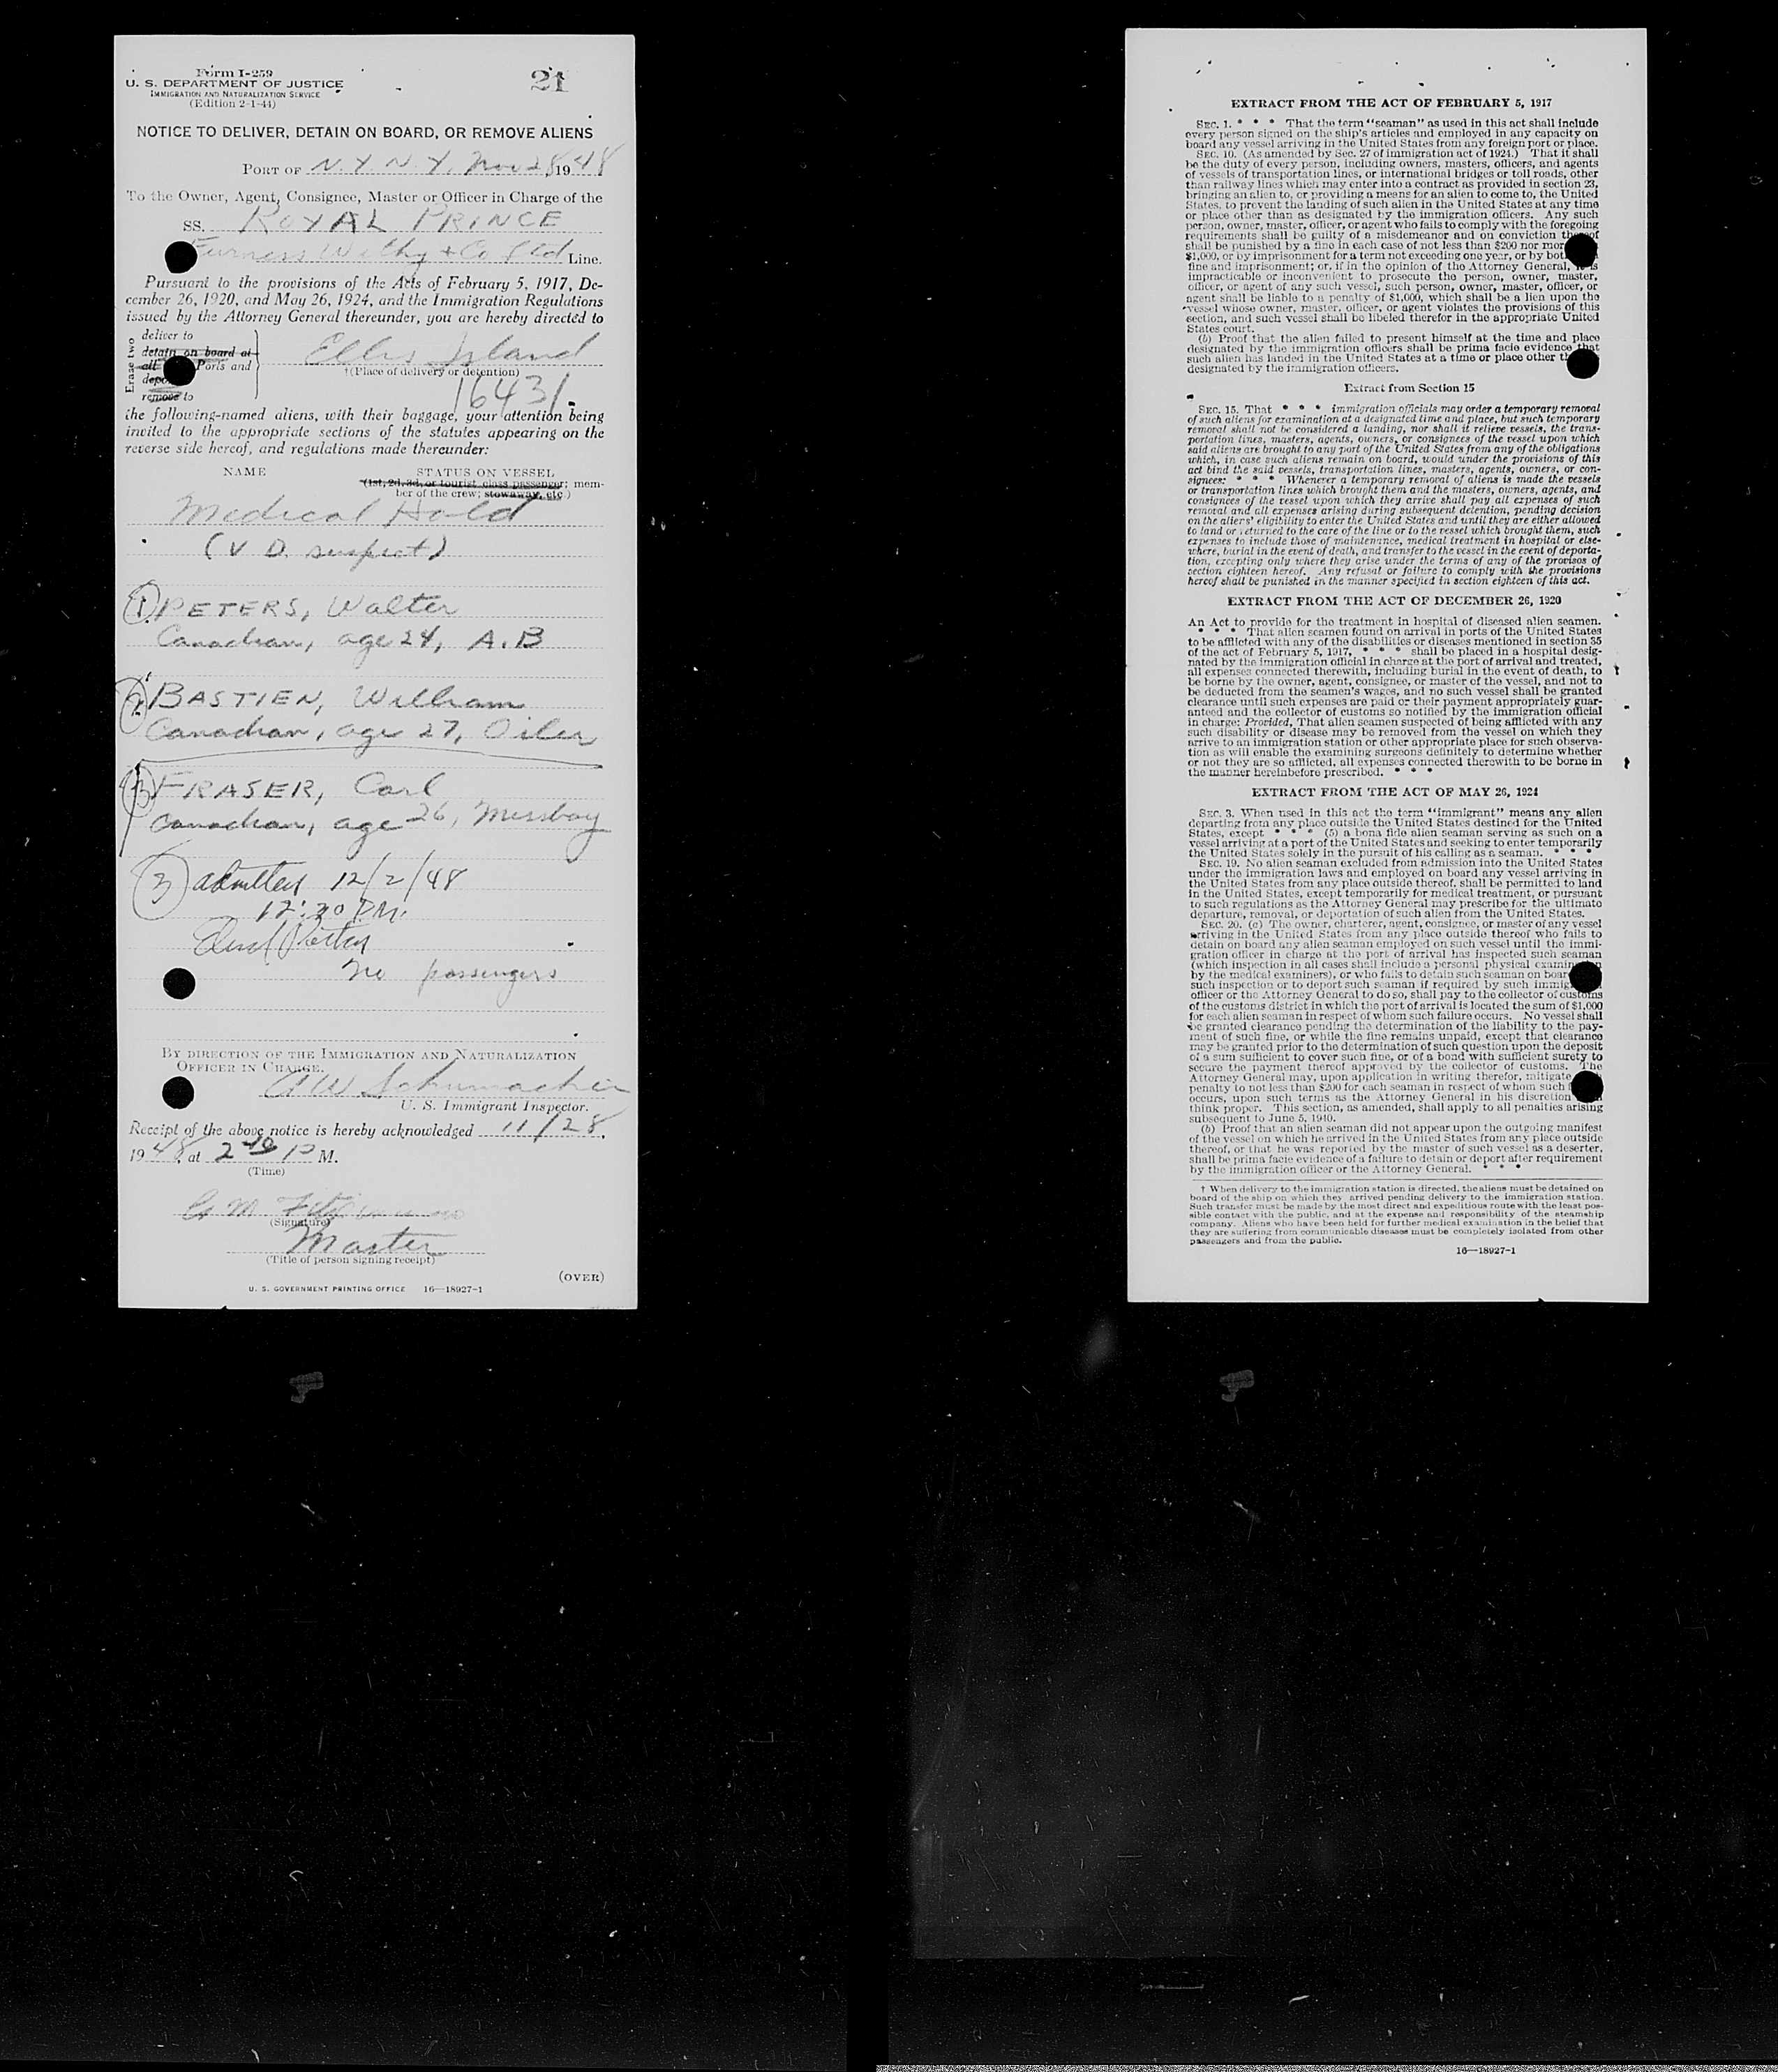 Form I-259
U. S. DEPARTMENT OF JUSTICE
IMMIGRATION AND NATURALIZATION SERVICE
(Edition 2-1-44)
21
NOTICE TO DELIVER, DETAIN ON BOARD, OR REMOVE ALIENS
PORT OF N.Y. N.Y. Nov 28, 1948
To the Owner, Agent, Consignee, Master or Officer in Charge of the
SS. ROYAL PRINCE
Furness Withy + Co Ltd Line.
Pursuant to the provisions of the Acts of February 5, 1917, De-
cember 26, 1920, and May 26, 1924, and the Immigration Regulations
issued by the Attorney General thereunder, you are hereby directed to
Erase two
deliver to
detain on board at
all Ports and
depo
remove to
Ellis Island
†(Place of delivery or detention)
16431
the following-named aliens, with their baggage, your attention being
invited to the appropriate sections of the statutes appearing on the
reverse side hereof, and regulations made thereunder:
NAME STATUS ON VESSEL
(1st, 2d, 3d, or tourist class passenger; mem-
ber of the crew; stowaway, etc.)
Medical Hold
(V D. suspect)
1. PETERS, Walter
Canadian, age 24, A.B
2. BASTIEN, William
Canadian, age 27, Oiler
3 FRASER, Carl
Canadian, age 26, Messboy
3 admitted 12/2/48
12:30 P.M.
no passengers
BY DIRECTION OF THE IMMIGRATION AND NATURALIZATION
OFFICER IN CHARGE.
A W Schumacher
U. S. Immigrant Inspector.
Receipt of the above notice is hereby acknowledged 11/28,
1948, at 2 40 P M.
(Time)
G M
(Signature)
Master
(Title of person signing receipt)
(OVER)
U. S. GOVERNMENT PRINTING OFFICE 16—18927-1
EXTRACT FROM THE ACT OF FEBRUARY 5, 1917
SEC. 1. * * * That the term "seaman" as used in this act shall include
every person signed on the ship's articles and employed in any capacity on
board any vessel arriving in the United States from any foreign port or place.
SEC. 10. (As amended by Sec. 27 of immigration act of 1924.) That it shall
be the duty of every person, including owners, masters, officers, and agents
of vessels of transportation lines, or international bridges or toll roads, other
than railway lines which may enter into a contract as provided in section 23,
bringing an alien to, or providing a means for an alien to come to, the United
States, to prevent the landing of such alien in the United States at any time
or place other than as designated by the immigration officers. Any such
person, owner, master, officer, or agent who fails to comply with the foregoing
requirements shall be guilty of a misdemeanor and on conviction thereof
shall be punished by a fine in each case of not less than $200 nor mor
$1,000, or by imprisonment for a term not exceeding one year, or by bot
fine and imprisonment; or, if in the opinion of the Attorney General, it is
impracticable or inconvenient to prosecute the person, owner, master,
officer, or agent of any such vessel, such person, owner, master, officer, or
agent shall be liable to a penalty of $1,000, which shall be a lien upon the
vessel whose owner, master, officer, or agent violates the provisions of this
section, and such vessel shall be libeled therefor in the appropriate United
States court.
(b) Proof that the alien failed to present himself at the time and place
designated by the immigration officers shall be prima facie evidence that
such alien has landed in the United States at a time or place other th
designated by the immigration officers.
Extract from Section 15
SEC. 15. That * * * immigration officials may order a temporary removal
of such aliens for examination at a designated time and place, but such temporary
removal shall not be considered a landing, nor shall it relieve vessels, the trans-
portation lines, masters, agents, owners, or consignees of the vessel upon which
said aliens are brought to any port of the United States from any of the obligations
which, in case such aliens remain on board, would under the provisions of this
act bind the said vessels, transportation lines, masters, agents, owners, or con-
signees: * * * Whenever a temporary removal of aliens is made the vessels
or transportation lines which brought them and the masters, owners, agents, and
consignees of the vessel upon which they arrive shall pay all expenses of such
removal and all expenses arising during subsequent detention, pending decision
on the aliens' eligibility to enter the United States and until they are either allowed
to land or returned to the care of the line or to the vessel which brought them, such
expenses to include those of maintenance, medical treatment in hospital or else-
where, burial in the event of death, and transfer to the vessel in the event of deporta-
tion, excepting only where they arise under the terms of any of the provisos of
section eighteen hereof. Any refusal or failure to comply with the provisions
hereof shall be punished in the manner specified in section eighteen of this act.
EXTRACT FROM THE ACT OF DECEMBER 26, 1920
An Act to provide for the treatment in hospital of diseased alien seamen.
* * * That alien seamen found on arrival in ports of the United States
to be afflicted with any of the disabilities or diseases mentioned in section 35
of the act of February 5, 1917, * * * shall be placed in a hospital desig-
nated by the immigration official in charge at the port of arrival and treated,
all expenses connected therewith, including burial in the event of death, to
be borne by the owner, agent, consignee, or master of the vessel, and not to
be deducted from the seamen's wages, and no such vessel shall be granted
clearance until such expenses are paid or their payment appropriately guar-
anteed and the collector of customs so notified by the immigration official
in charge: Provided, That alien seamen suspected of being afflicted with any
such disability or disease may be removed from the vessel on which they
arrive to an immigration station or other appropriate place for such observa-
tion as will enable the examining surgeons definitely to determine whether
or not they are so afflicted, all expenses connected therewith to be borne in
the manner hereinbefore prescribed. * * *
EXTRACT FROM THE ACT OF MAY 26, 1924
SEC. 3. When used in this act the term "immigrant" means any alien
departing from any place outside the United States destined for the United
States, except * * * (5) a bona fide alien seaman serving as such on a
vessel arriving at a port of the United States and seeking to enter temporarily
the United States solely in the pursuit of his calling as a seaman. * * *
SEC. 19. No alien seaman excluded from admission into the United States
under the immigration laws and employed on board any vessel arriving in
the United States from any place outside thereof, shall be permitted to land
in the United States, except temporarily for medical treatment, or pursuant
to such regulations as the Attorney General may prescribe for the ultimate
departure, removal, or deportation of such alien from the United States.
SEC. 20. (a) The owner, charterer, agent, consignee, or master of any vessel
arriving in the United States from any place outside thereof who fails to
detain on board any alien seaman employed on such vessel until the immi-
gration officer in charge at the port of arrival has inspected such seaman
(which inspection in all cases shall include a personal physical examin
by the medical examiners), or who fails to detain such seaman on boar
such inspection or to deport such seaman if required by such immig
officer or the Attorney General to do so, shall pay to the collector of customs
of the customs district in which the port of arrival is located the sum of $1,000
for each alien seaman in respect of whom such failure occurs. No vessel shall
be granted clearance pending the determination of the liability to the pay-
ment of such fine, or while the fine remains unpaid, except that clearance
may be granted prior to the determination of such question upon the deposit
of a sum sufficient to cover such fine, or of a bond with sufficient surety to
secure the payment thereof approved by the collector of customs. The
Attorney General may, upon application in writing therefor, mitigate
penalty to not less than $200 for each seaman in respect of whom such
occurs, upon such terms as the Attorney General in his discretion
think proper. This section, as amended, shall apply to all penalties arising
subsequent to June 5, 1940.
(b) Proof that an alien seaman did not appear upon the outgoing manifest
of the vessel on which he arrived in the United States from any place outside
thereof, or that he was reported by the master of such vessel as a deserter,
shall be prima facie evidence of a failure to detain or deport after requirement
by the immigration officer or the Attorney General. * * *
† When delivery to the immigration station is directed, the aliens must be detained on
board of the ship on which they arrived pending delivery to the immigration station.
Such transfer must be made by the most direct and expeditious route with the least pos-
sible contact with the public, and at the expense and responsibility of the steamship
company. Aliens who have been held for further medical examination in the belief that
they are suffering from communicable diseases must be completely isolated from other
passengers and from the public.
16—18927-1